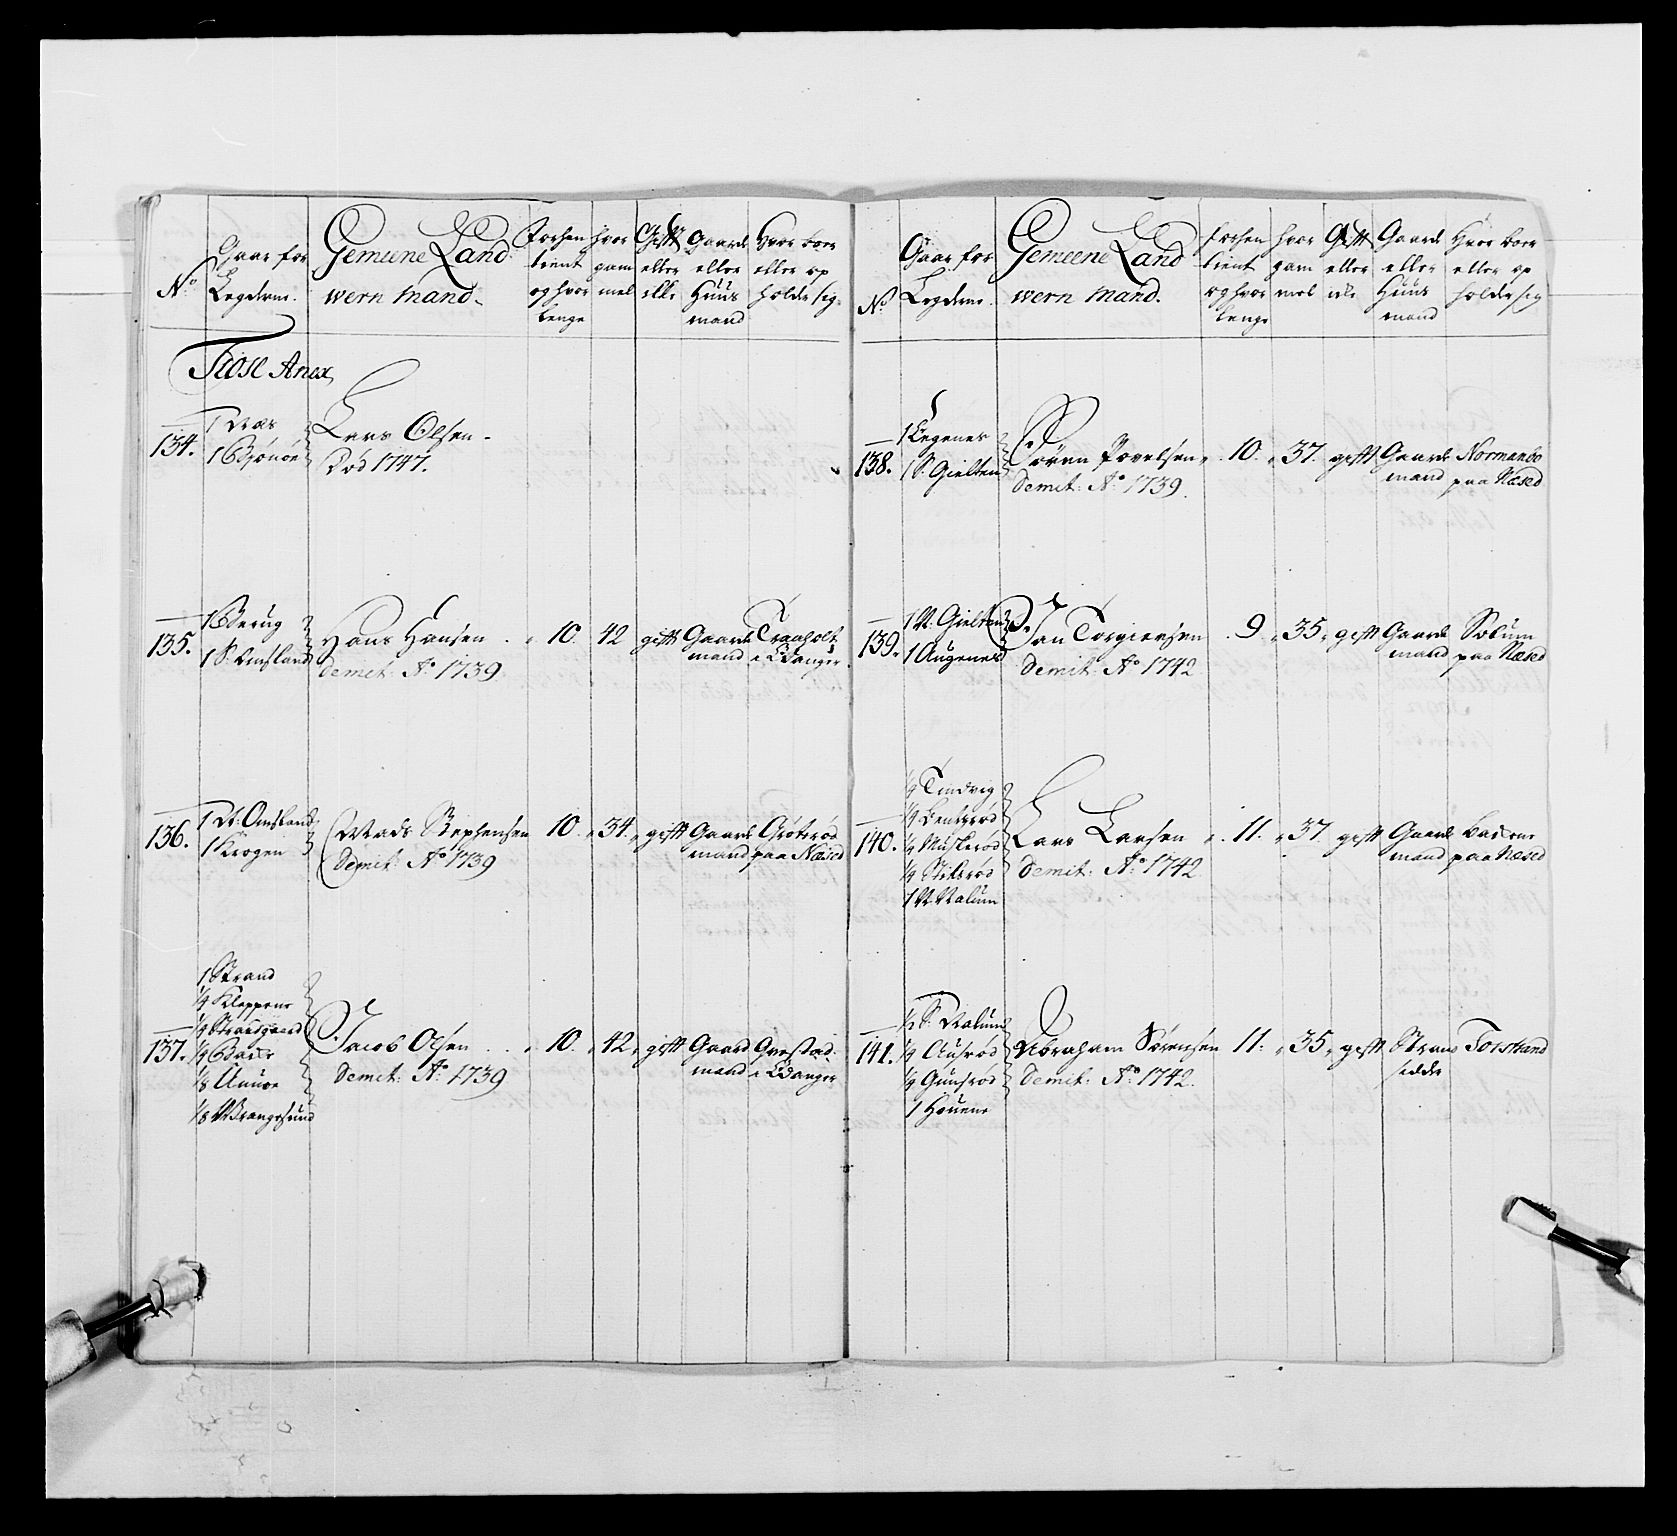 No
Gaar for
Legderne.
Gemeene Land
wern Mand.
Forhen
tient
og hvor
lenge
hvor
gam
mel
Gift
eller
ikke
Gaard
eller
Huus
mand
Hvor boer
eller op
holder sig.
Tiøse Anex
134.
1 Næs
1 Biønøe
Lars Olsen
Død 1747.
135.
1 Berug
1 S: Omsland
Hans Hansen
Demit: Ao 1739
10.
42
gift
Gaard
mand
Traaholt
i Eidanger
136.
1 N: Omsland
1 Krogen
Mads Stephensen
Demit: Ao 1739
10.
34.
gift
Gaard
mand
Grøterød
paa Næsed
137.
1 Strand
1/4 Kleppene
1/4 Strandgaard
1/4
1/8 Auuøe
1/8 Wrangesund
Jacob Olsen
Demit: Ao 1739
10.
42.
gift
Gaard
mand
Grestad
i Eidanger
No
Gaar for
Legderne.
Gemeene Land
wern Mand.
forhen
tient
og hvor
lenge
hvor
gam
mel
Gift
eller
ikke
Gaard
eller
Huus
mand
Hvor boer
eller op
holder sig
138.
1 Legenes
1 S: Gielten
Søren Povelsen
Demit: Ao 1739.
10.
37.
gift
Gaard
mand
Normanbo
paa Næsed
139.
1 N: Gielten
1 Augenes
Jan Torgiersen
Demit: Ao 1742
9
35.
gift
Gaard
mand
Solum
paa Næsed
140.
1/4 Tindvig
1/4
1/4 Muslerød
1/4
1 N: Nalum
Lars Larsen
Demit: Ao 1742
11.
37.
gift
Gaard
mand
paa Næsed
141.
1/2 S: Nalum
1/4 Ausrød
1/4 Gunsrød
1 Houene
Abraham Sørensen
Demit: Ao 1742.
11.
35.
gift
Strand
sidder
Torstrand